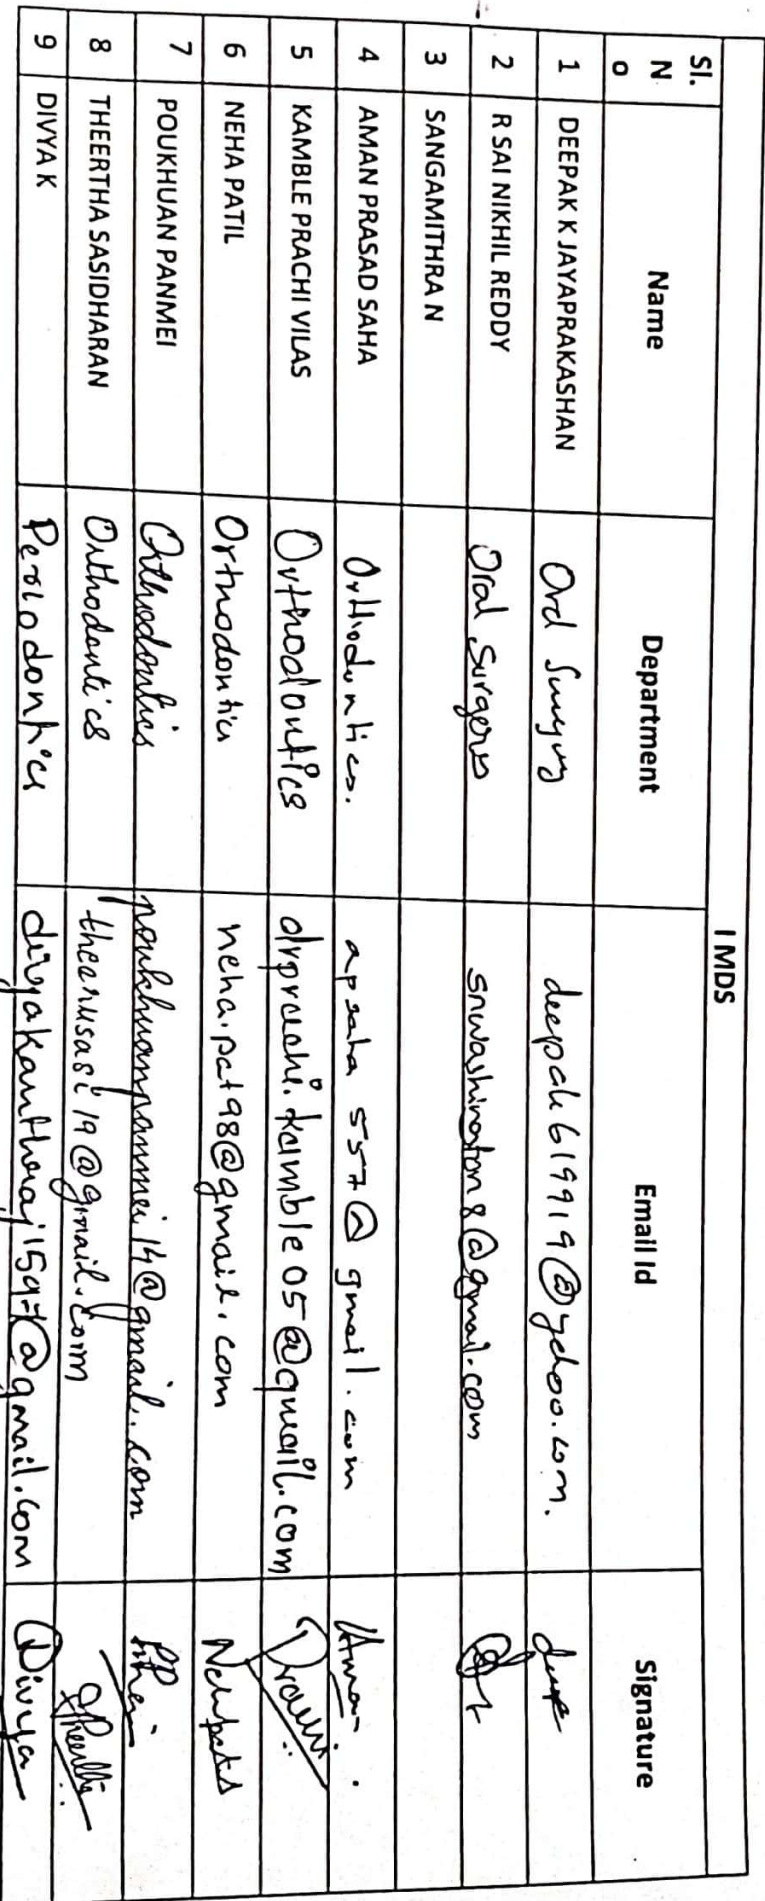 I MDS
Sl. N o Name Department Email Id Signature
1 DEEPAK K JAYAPRAKASHAN Oral Surgery deepak619919@yahoo.com.
2 R SAI NIKHIL REDDY Oral Surgery snwashington8@gmail.com
3 SANGAMITHRA N
4 AMAN PRASAD SAHA Orthodontics. apsaha557@gmail.com Aman.
5 KAMBLE PRACHI VILAS Orthodontics drprachi.kamble05@gmail.com Prachi
6 NEHA PATIL Orthodontics neha.pat98@gmail.com Nehapatil
7 POUKHUAN PANMEI Orthodontics poukhuanpanmei14@gmail.com
8 THEERTHA SASIDHARAN Orthodontics theerusasi19@gmail.com Theertha
9 DIVYA K Periodontics divyakanthraj1597@gmail.com Divya